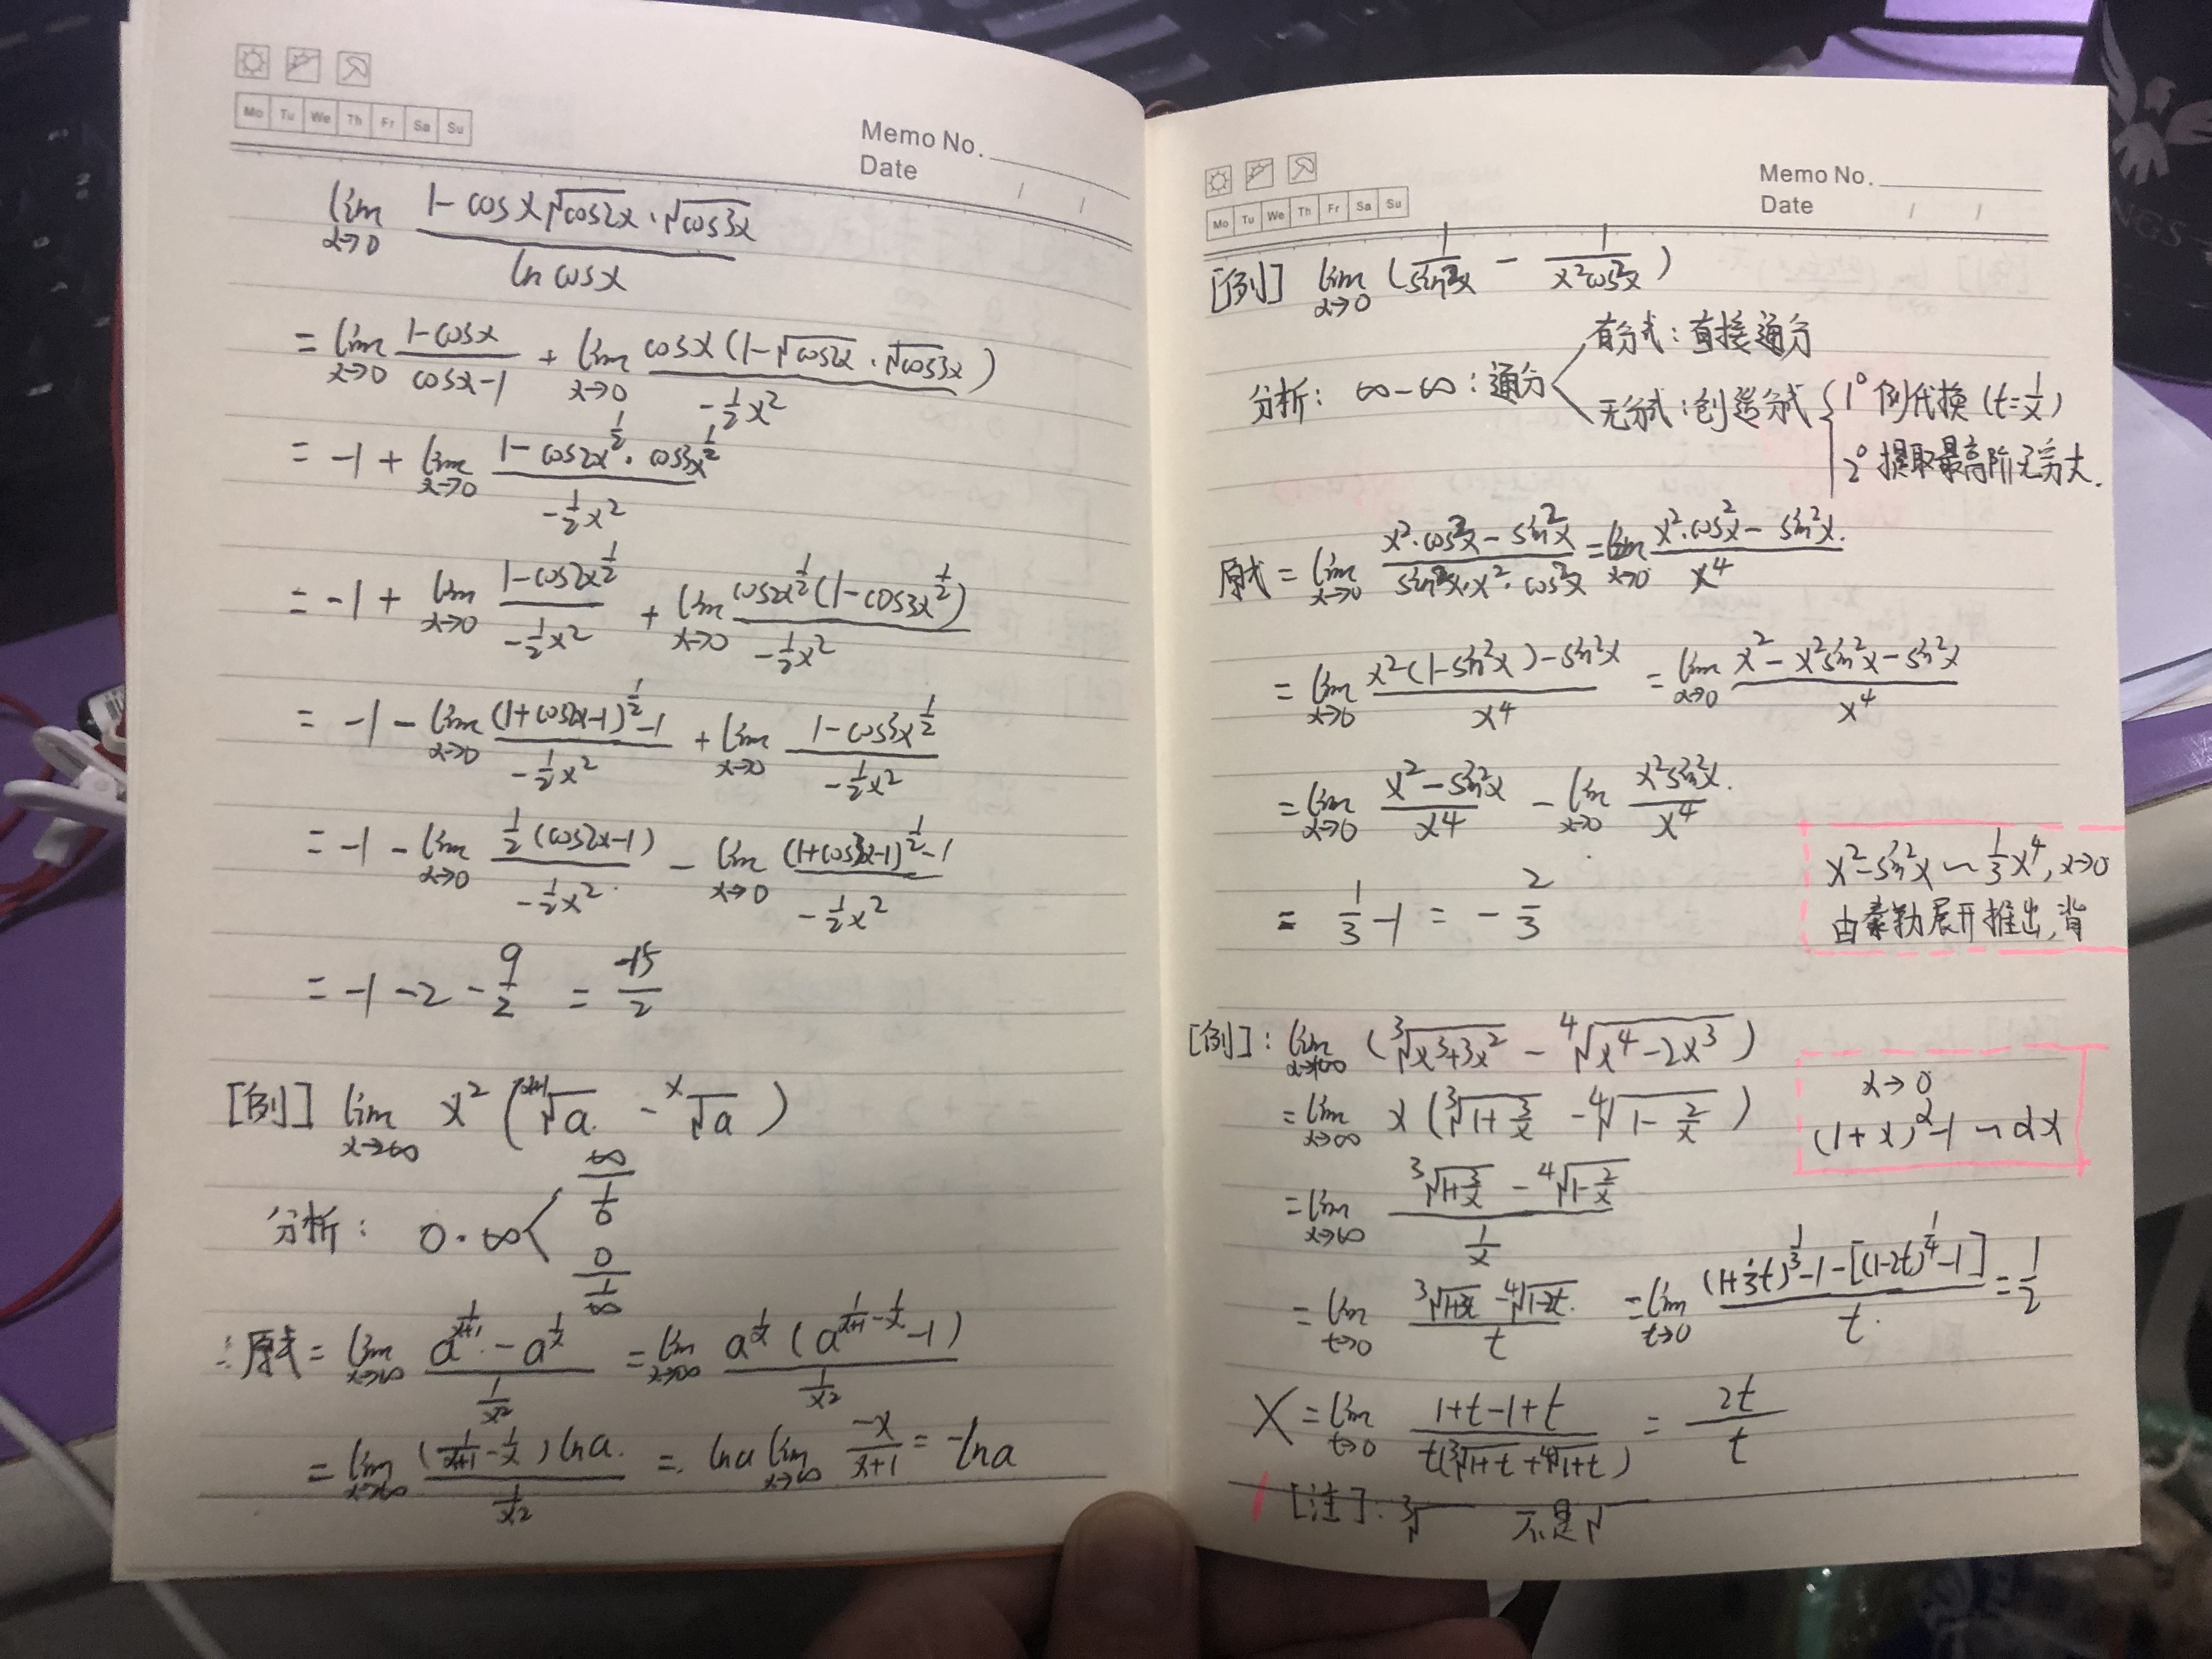 Mo Tu We Th Fr Sa Su
Memo No.
Date / /
lim x→0 (1-cosx√cos2x·√cos3x)/(ln cosx)
= lim x→0 (1-cosx)/(cosx-1) + lim x→0 (cosx(1-√cos2x·√cos3x))/(-1/2 x²)
= -1 + lim x→0 (1-cos2x^(1/2)·cos3x^(1/2))/(-1/2 x²)
= -1 + lim x→0 (1-cos2x^(1/2))/(-1/2 x²) + lim x→0 (cos2x^(1/2)(1-cos3x^(1/2)))/(-1/2 x²)
= -1 - lim x→0 ((1+cos2x-1)^(1/2)-1)/(-1/2 x²) + lim x→0 (1-cos3x^(1/2))/(-1/2 x²)
= -1 - lim x→0 (1/2(cos2x-1))/(-1/2 x²) - lim x→0 ((1+cos3x-1)^(1/2)-1)/(-1/2 x²)
= -1 -2 - 9/2 = -15/2
[例] lim x→∞ x²(ˣ⁺¹√a - ˣ√a)
分析: 0·∞ < ∞/(1/0) 0/(1/∞)
∴原式= lim x→∞ (a^(1/(x+1)) - a^(1/x))/(1/x²) = lim x→∞ (a^(1/x)(a^(1/(x+1)-1/x)-1))/(1/x²)
= lim x→∞ ((1/(x+1)-1/x)lna)/(1/x²) = lna lim x→∞ -x/(x+1) = -lna
Mo Tu We Th Fr Sa Su
Memo No.
Date / /
[例] lim x→0 (1/sin²x - 1/(x²cos²x))
有分式:直接通分
分析: ∞-∞:通分
无分式:创造分式 { 1° 倒代换(t=1/x)
2° 提取最高阶无穷大.
原式= lim x→0 (x²·cos²x-sin²x)/(sin²x·x²·cos²x) = lim x→0 (x²·cos²x-sin²x)/x⁴
= lim x→0 (x²(1-sin²x)-sin²x)/x⁴ = lim x→0 (x²-x²sin²x-sin²x)/x⁴
= lim x→0 (x²-sin²x)/x⁴ - lim x→0 (x²sin²x)/x⁴
x²-sin²x ~ 1/3 x⁴, x→0
由泰勒展开推出,背
= 1/3 - 1 = -2/3
[例]: lim x→+∞ (³√(x³+3x²) - ⁴√(x⁴-2x³))
= lim x→∞ x(³√(1+3/x) - ⁴√(1-2/x))
x→0
(1+x)^α-1 ~ αx
= lim x→∞ (³√(1+3/x) - ⁴√(1-2/x))/(1/x)
= lim t→0 (³√(1+3t) - ⁴√(1-2t))/t = lim t→0 ((1+3t)^(1/3)-1-[(1-2t)^(1/4)-1])/t = 1/2
X = lim t→0 (1+t-1+t)/(t(³√(1+t)+⁴√(1+t))) = 2t/t
[注]: ³√ 不是√